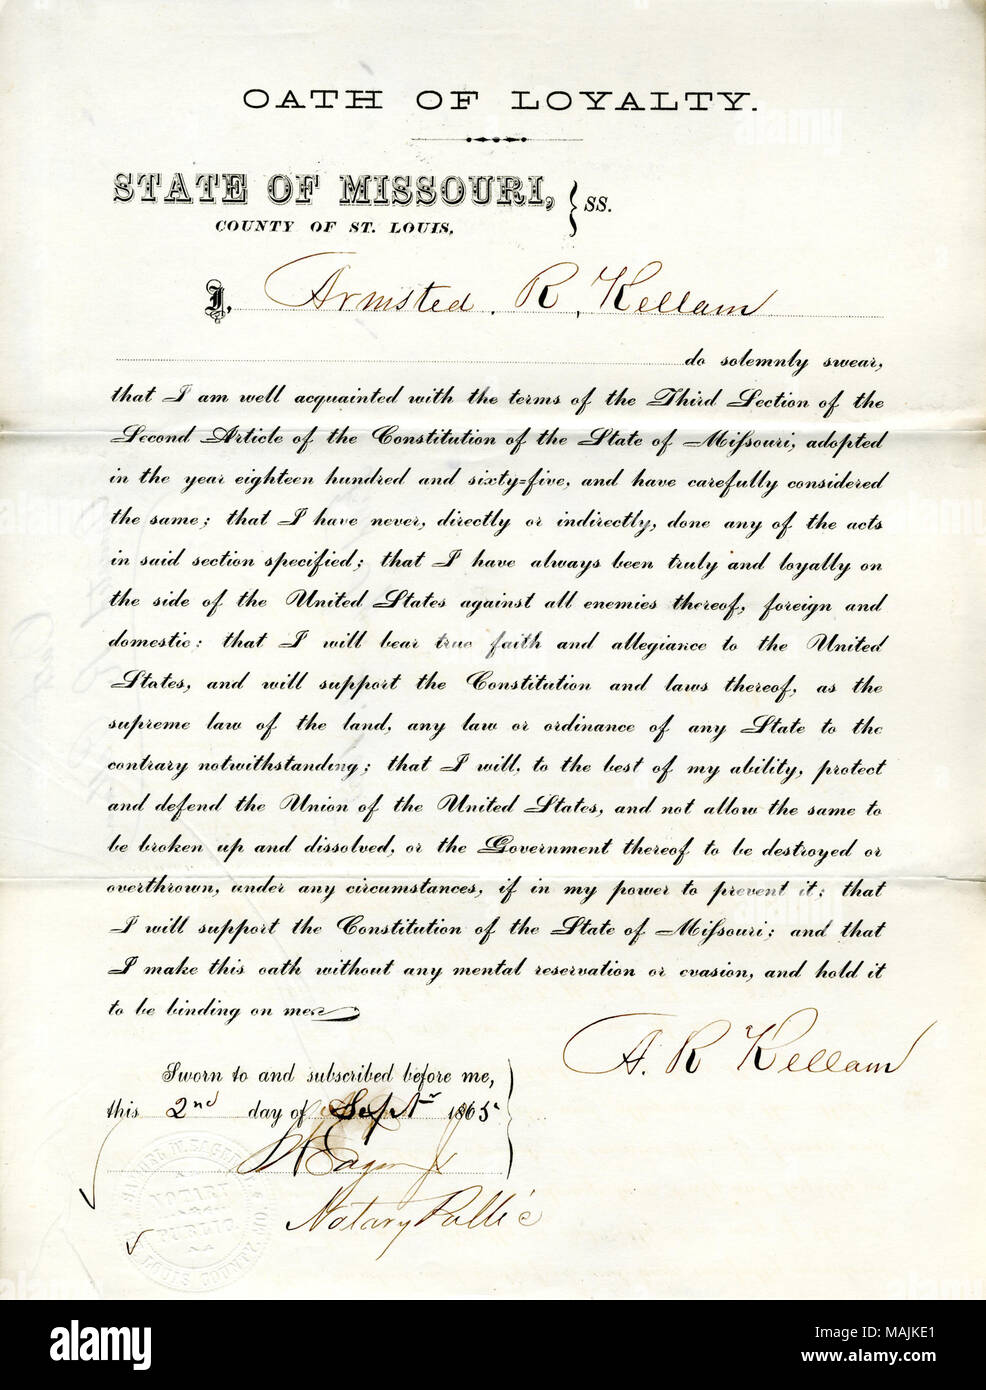 OATH OF LOYALTY.
STATE OF MISSOURI, } SS.
COUNTY OF ST. LOUIS,
I, Armsted. R, Kellam
do solemnly swear,
that I am well acquainted with the terms of the Third Section of the
Second Article of the Constitution of the State of Miſsouri, adopted
in the year eighteen hundred and sixty=five, and have carefully considered
the same; that I have never, directly or indirectly, done any of the acts
in said section specified; that I have always been truly and loyally on
the side of the United States against all enemies thereof, foreign and
domestic: that I will bear true faith and allegiance to the United
States, and will support the Constitution and laws thereof, as the
supreme law of the land, any law or ordinance of any State to the
contrary notwithstanding; that I will, to the best of my ability, protect
and defend the Union of the United States, and not allow the same to
be broken up and dissolved, or the Government thereof to be destroyed or
overthrown, under any circumstances, if in my power to prevent it; that
I will support the Constitution of the State of Miſsouri; and that
I make this oath without any mental reservation or evasion, and hold it
to be binding on me
A. R Kellam
Sworn to and subscribed before me,
this 2nd day of Septr 1865
Notary Public
NOTARY
PUBLIC
LOUIS COUNTY, MO.
alamy
Image ID: MAJKE1
www.alamy.com